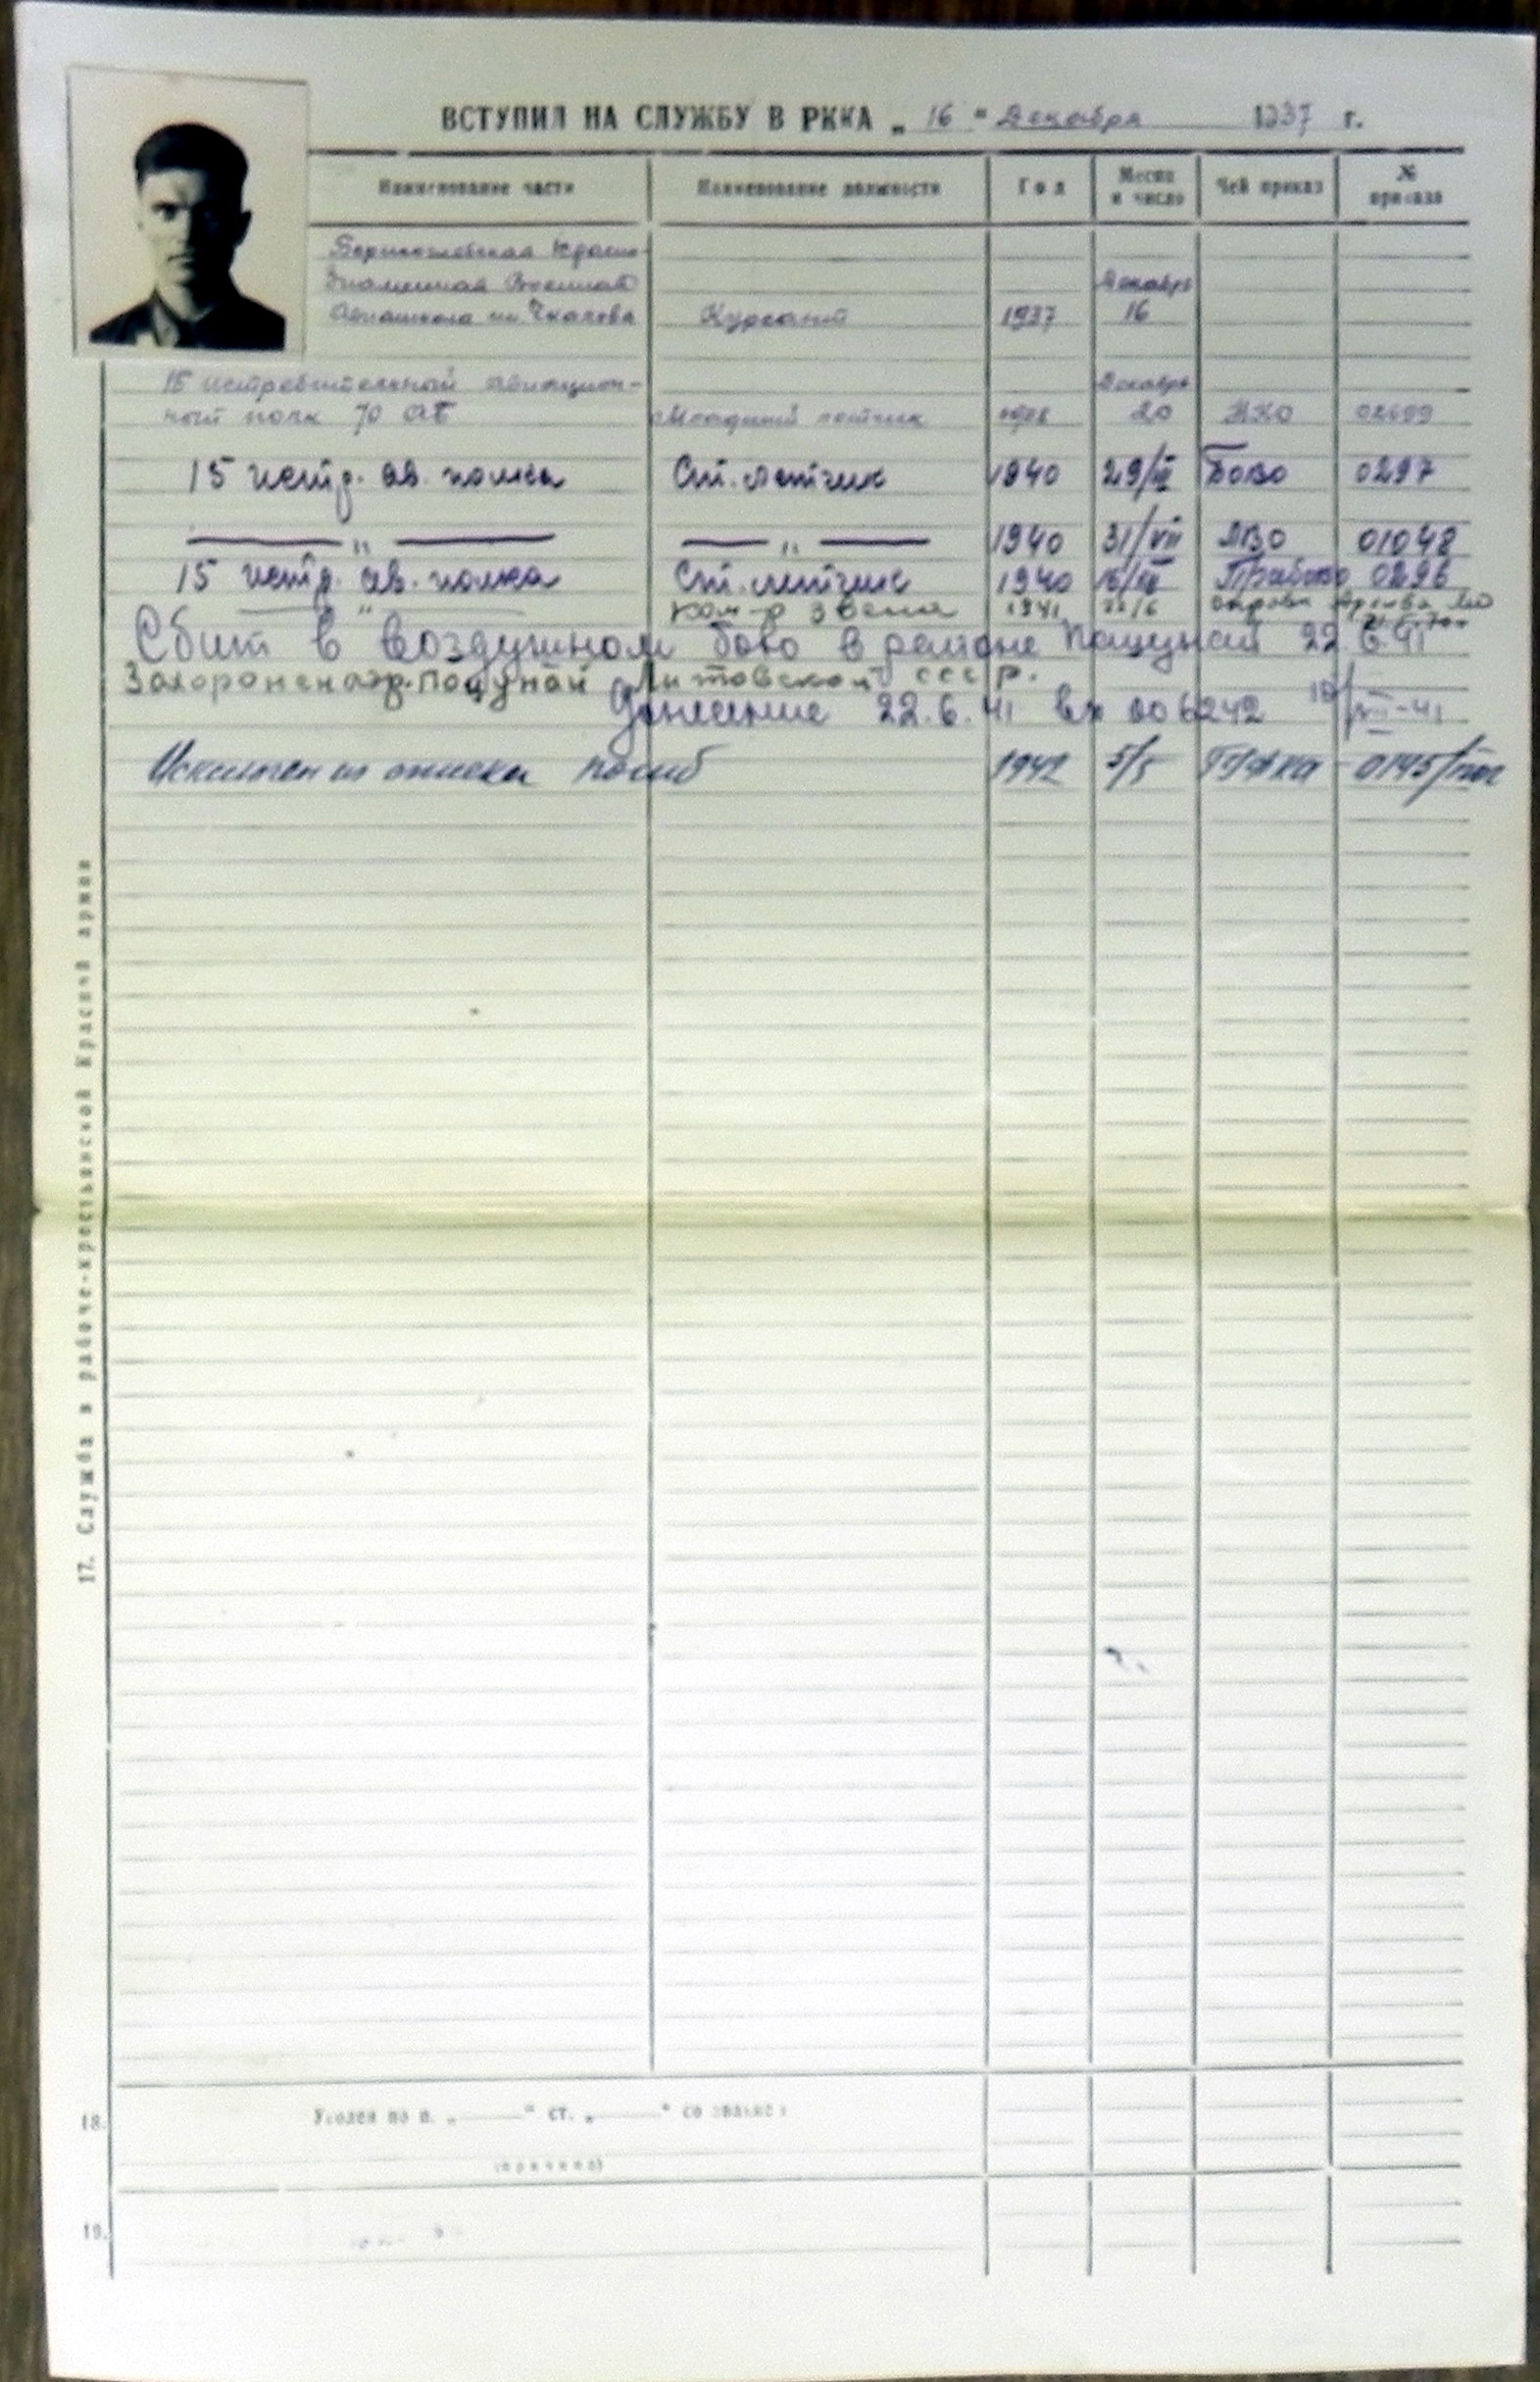 ВСТУПИЛ НА СЛУЖБУ В РККА „16“ Декабря 1937 г.
Наименование части Наименование должности Год Месяц и число Чей приказ № приказа
Борисоглебская Красно-
Знаменная Военная Декабря
Авиашкола им. Чкалова Курсант 1937 16
15 истребительный авиацион- Декабря
ный полк 70 АБ Младший летчик 20 НКО
15 истр. ав. полка Ст. летчик 1940 29/III БОВО 0297
— " — — " — 1940 31/VII 01048
15 истр. ав. полка Ст. летчик 1940 Прибово 0296
— " — ком-р звена 1941 22/6 справка Архива МО
Сбит в воздушном бою в районе Поцунай 22.6.41
Захоронен аэр. Поцунай Литовской ССР.
Донесение 22.6.41 вх 006242
Исключен из списка погиб 1942 5/5 ГУФКА 0145/пог
17. Служба в рабоче-крестьянской Красной армии
18. Уволен по п. „ “ ст. „ “ со званием
(причина)
19.